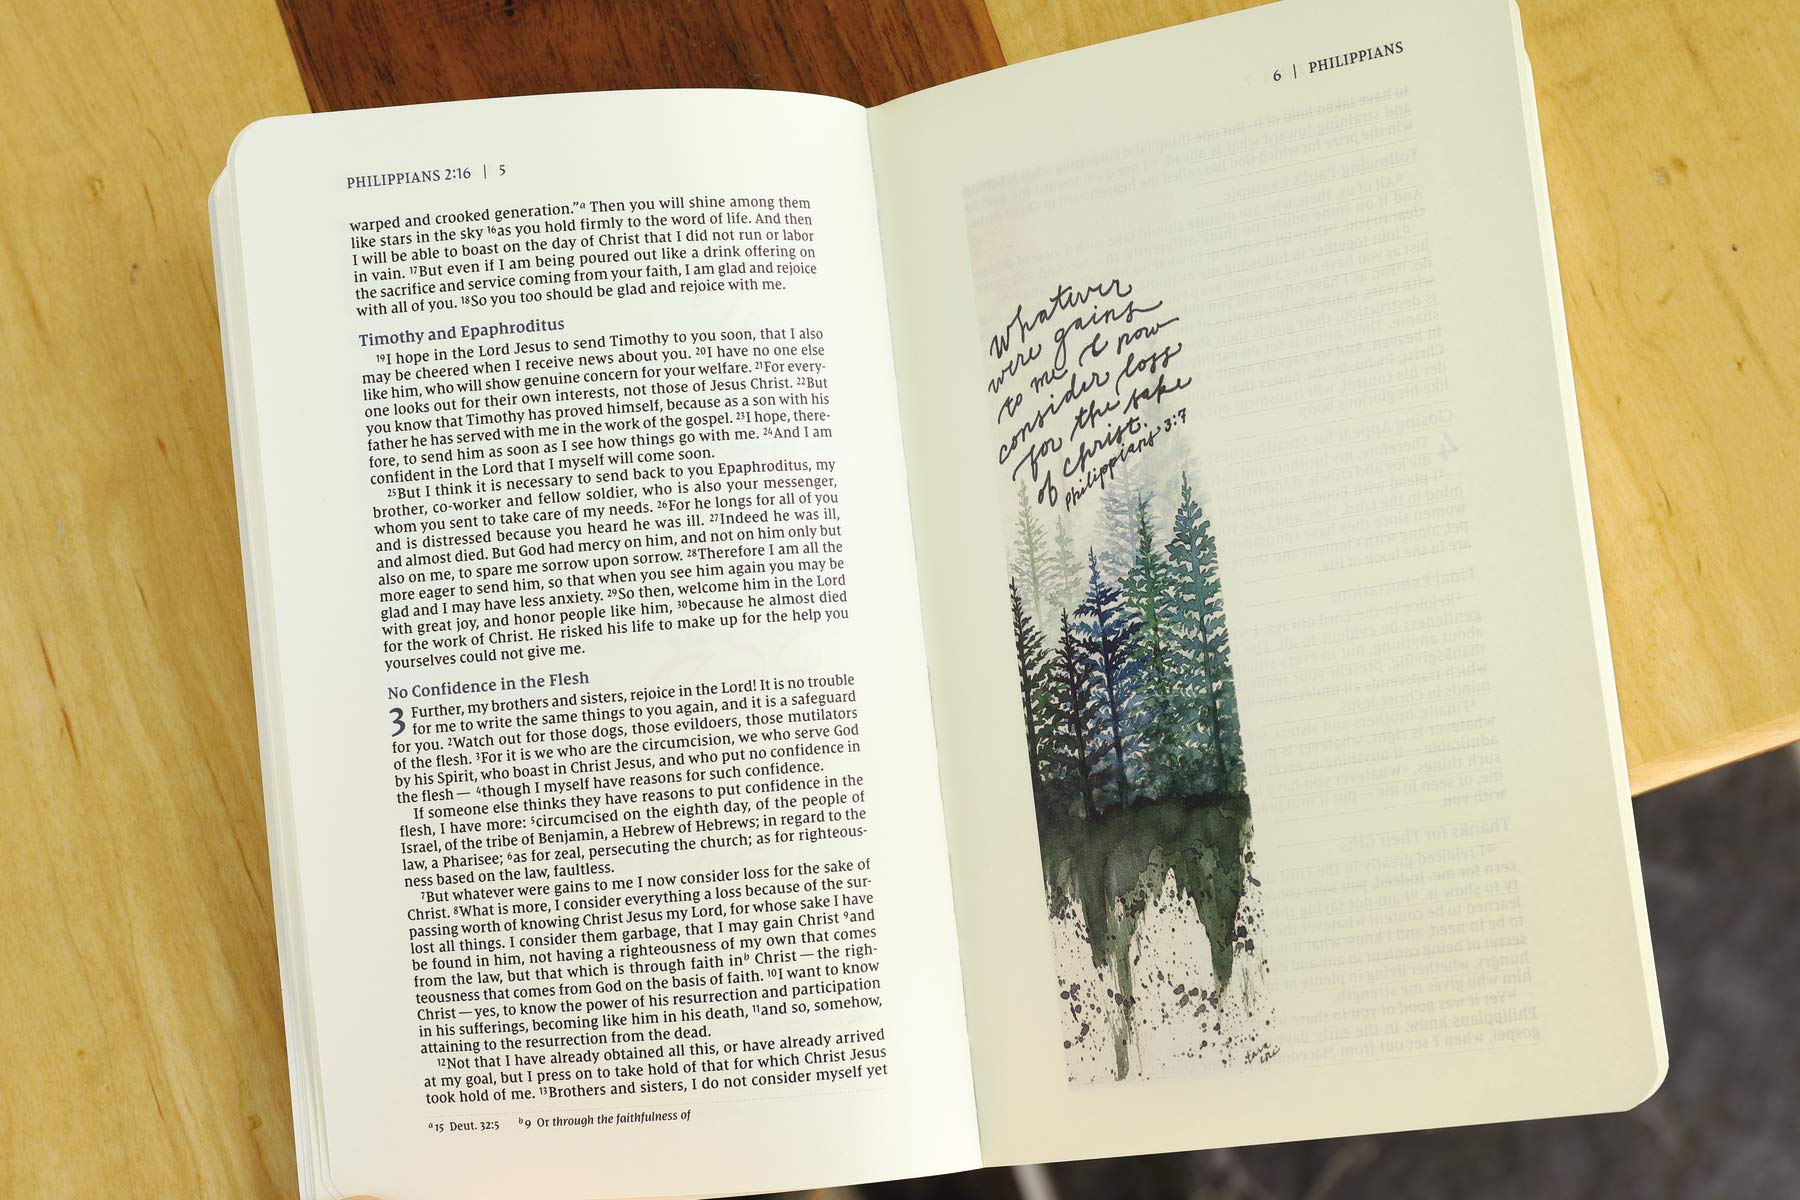 PHILIPPIANS 2:16 | 5
warped and crooked generation."a Then you will shine among them
like stars in the sky 16as you hold firmly to the word of life. And then
I will be able to boast on the day of Christ that I did not run or labor
in vain. 17But even if I am being poured out like a drink offering on
the sacrifice and service coming from your faith, I am glad and rejoice
with all of you. 18So you too should be glad and rejoice with me.
Timothy and Epaphroditus
19I hope in the Lord Jesus to send Timothy to you soon, that I also
may be cheered when I receive news about you. 20I have no one else
like him, who will show genuine concern for your welfare. 21For every-
one looks out for their own interests, not those of Jesus Christ. 22But
you know that Timothy has proved himself, because as a son with his
father he has served with me in the work of the gospel. 23I hope, there-
fore, to send him as soon as I see how things go with me. 24And I am
confident in the Lord that I myself will come soon.
25But I think it is necessary to send back to you Epaphroditus, my
brother, co-worker and fellow soldier, who is also your messenger,
whom you sent to take care of my needs. 26For he longs for all of you
and is distressed because you heard he was ill. 27Indeed he was ill,
and almost died. But God had mercy on him, and not on him only but
also on me, to spare me sorrow upon sorrow. 28Therefore I am all the
more eager to send him, so that when you see him again you may be
glad and I may have less anxiety. 29So then, welcome him in the Lord
with great joy, and honor people like him, 30because he almost died
for the work of Christ. He risked his life to make up for the help you
yourselves could not give me.
No Confidence in the Flesh
3 Further, my brothers and sisters, rejoice in the Lord! It is no trouble
for me to write the same things to you again, and it is a safeguard
for you. 2Watch out for those dogs, those evildoers, those mutilators
of the flesh. 3For it is we who are the circumcision, we who serve God
by his Spirit, who boast in Christ Jesus, and who put no confidence in
the flesh — 4though I myself have reasons for such confidence.
If someone else thinks they have reasons to put confidence in the
flesh, I have more: 5circumcised on the eighth day, of the people of
Israel, of the tribe of Benjamin, a Hebrew of Hebrews; in regard to the
law, a Pharisee; 6as for zeal, persecuting the church; as for righteous-
ness based on the law, faultless.
7But whatever were gains to me I now consider loss for the sake of
Christ. 8What is more, I consider everything a loss because of the sur-
passing worth of knowing Christ Jesus my Lord, for whose sake I have
lost all things. I consider them garbage, that I may gain Christ 9and
be found in him, not having a righteousness of my own that comes
from the law, but that which is through faith inb Christ — the righ-
teousness that comes from God on the basis of faith. 10I want to know
Christ — yes, to know the power of his resurrection and participation
in his sufferings, becoming like him in his death, 11and so, somehow,
attaining to the resurrection from the dead.
12Not that I have already obtained all this, or have already arrived
at my goal, but I press on to take hold of that for which Christ Jesus
took hold of me. 13Brothers and sisters, I do not consider myself yet
a15 Deut. 32:5 b9 Or through the faithfulness of
6 | PHILIPPIANS
whatever
were gains
to me I now
consider loss
for the sake
of christ.
philippians 3:7